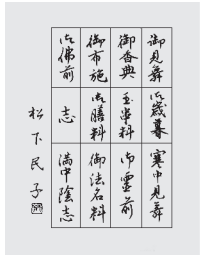 御見舞
御歳暮
寒中見舞
御香典
玉串料
御霊前
御布施
御膳料
御法名料
御佛前
志
満中陰志
松下民子